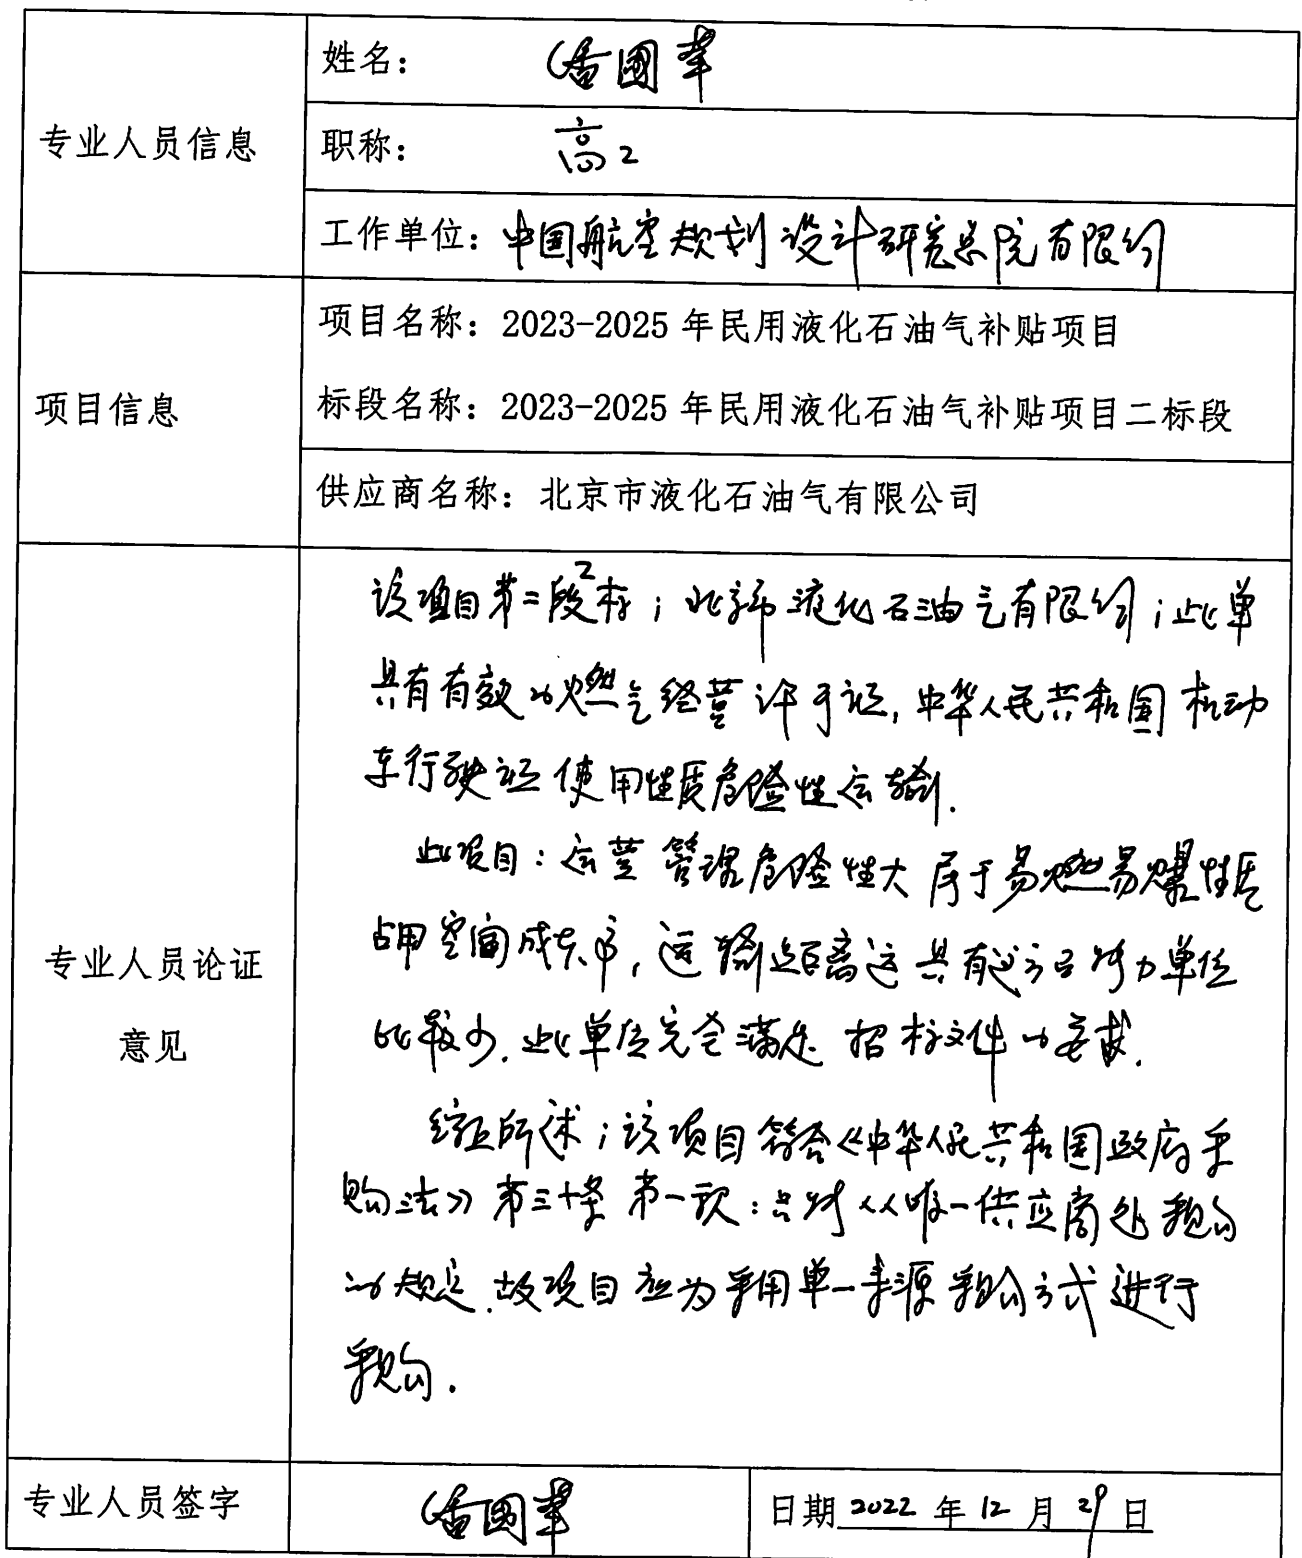 专业人员信息
姓名：國華
职称：高工
工作单位：中国航空规划设计研究总院有限公司
项目信息
项目名称：2023-2025 年民用液化石油气补贴项目
标段名称：2023-2025 年民用液化石油气补贴项目二标段
供应商名称：北京市液化石油气有限公司
专业人员论证
意见
该项目第二段标；北京市液化石油气有限公司；此单
具有有效的燃气经营许可证，中华人民共和国机动
车行驶证使用性质危险性运输.
此项目：运营管理危险性大属于易燃易爆性质
占用空间成本高，运输距离远具有这方面能力单位
比较少.此单位完全满足招标文件的要求.
综上所述；该项目符合《中华人民共和国政府采
购法》第三十一条第一款：只能从唯一供应商处采购
的规定.故项目应为采用单一来源采购方式进行
采购.
专业人员签字
國華
日期 2022 年 12 月 29 日